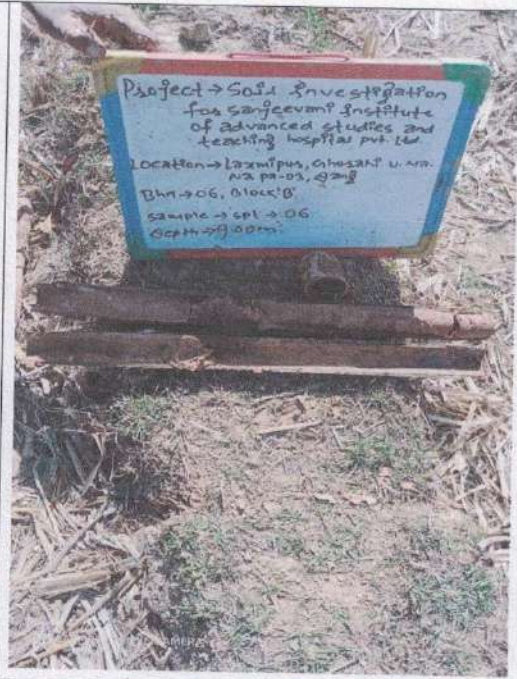 Project → Soil Investigation
for sanjeevani Institute
of advanced studies and
teaching hospital pvt. Ltd.
Location → Laxmipur, Ghorahi U. Na.
Na pa-03, Dang
Bhn → 06, Block 'B'
sample → spt → 06
depth → 9.00m